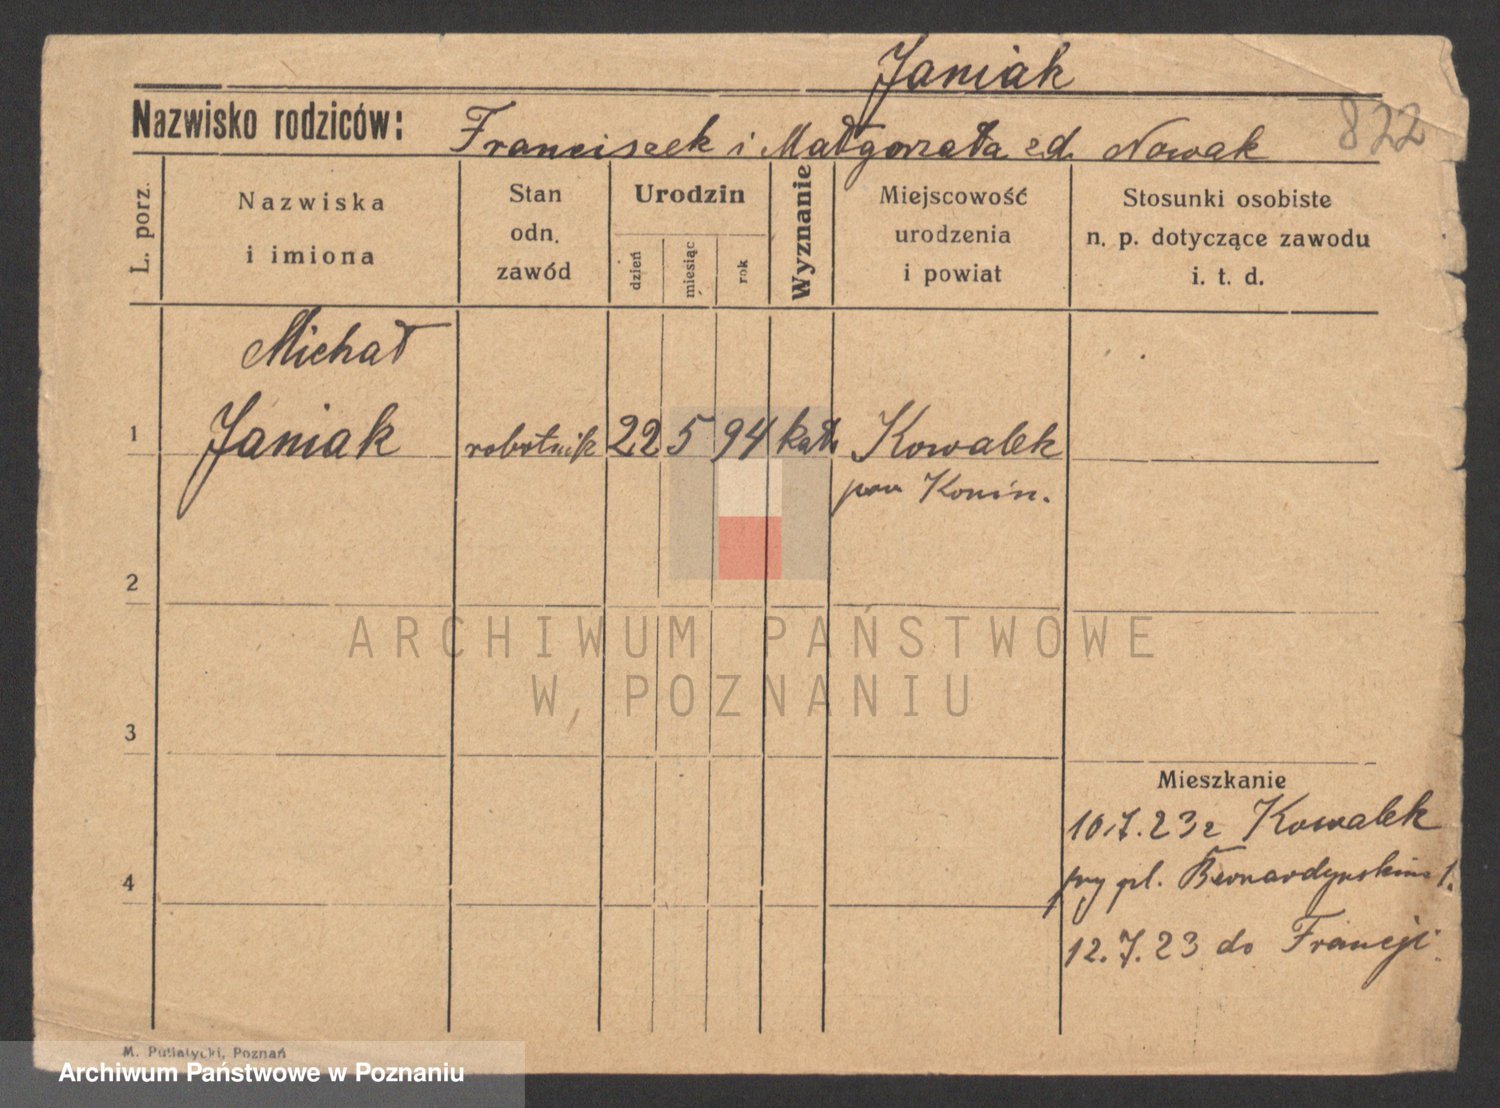 Janiak
Nazwisko rodziców: Franciszek i Małgorzata zd. Nowak
822
L. porz.
Nazwiska
i imiona
Stan
odn.
zawód
Urodzin
dzień
miesiąc
rok
Wyznanie
Miejscowość
urodzenia
i powiat
Stosunki osobiste
n. p. dotyczące zawodu
i. t. d.
Michał
1 Janiak robotnik 22 5 94 kat. Kowalek
pow Konin.
2
ARCHIWUM PAŃSTWOWE
W POZNANIU
3
Mieszkanie
10.7.23 z Kowalek
4
przy pl. Bernardyńskim 1.
12.7.23 do Francji.
M. Putiatycki, Poznań
Archiwum Państwowe w Poznaniu